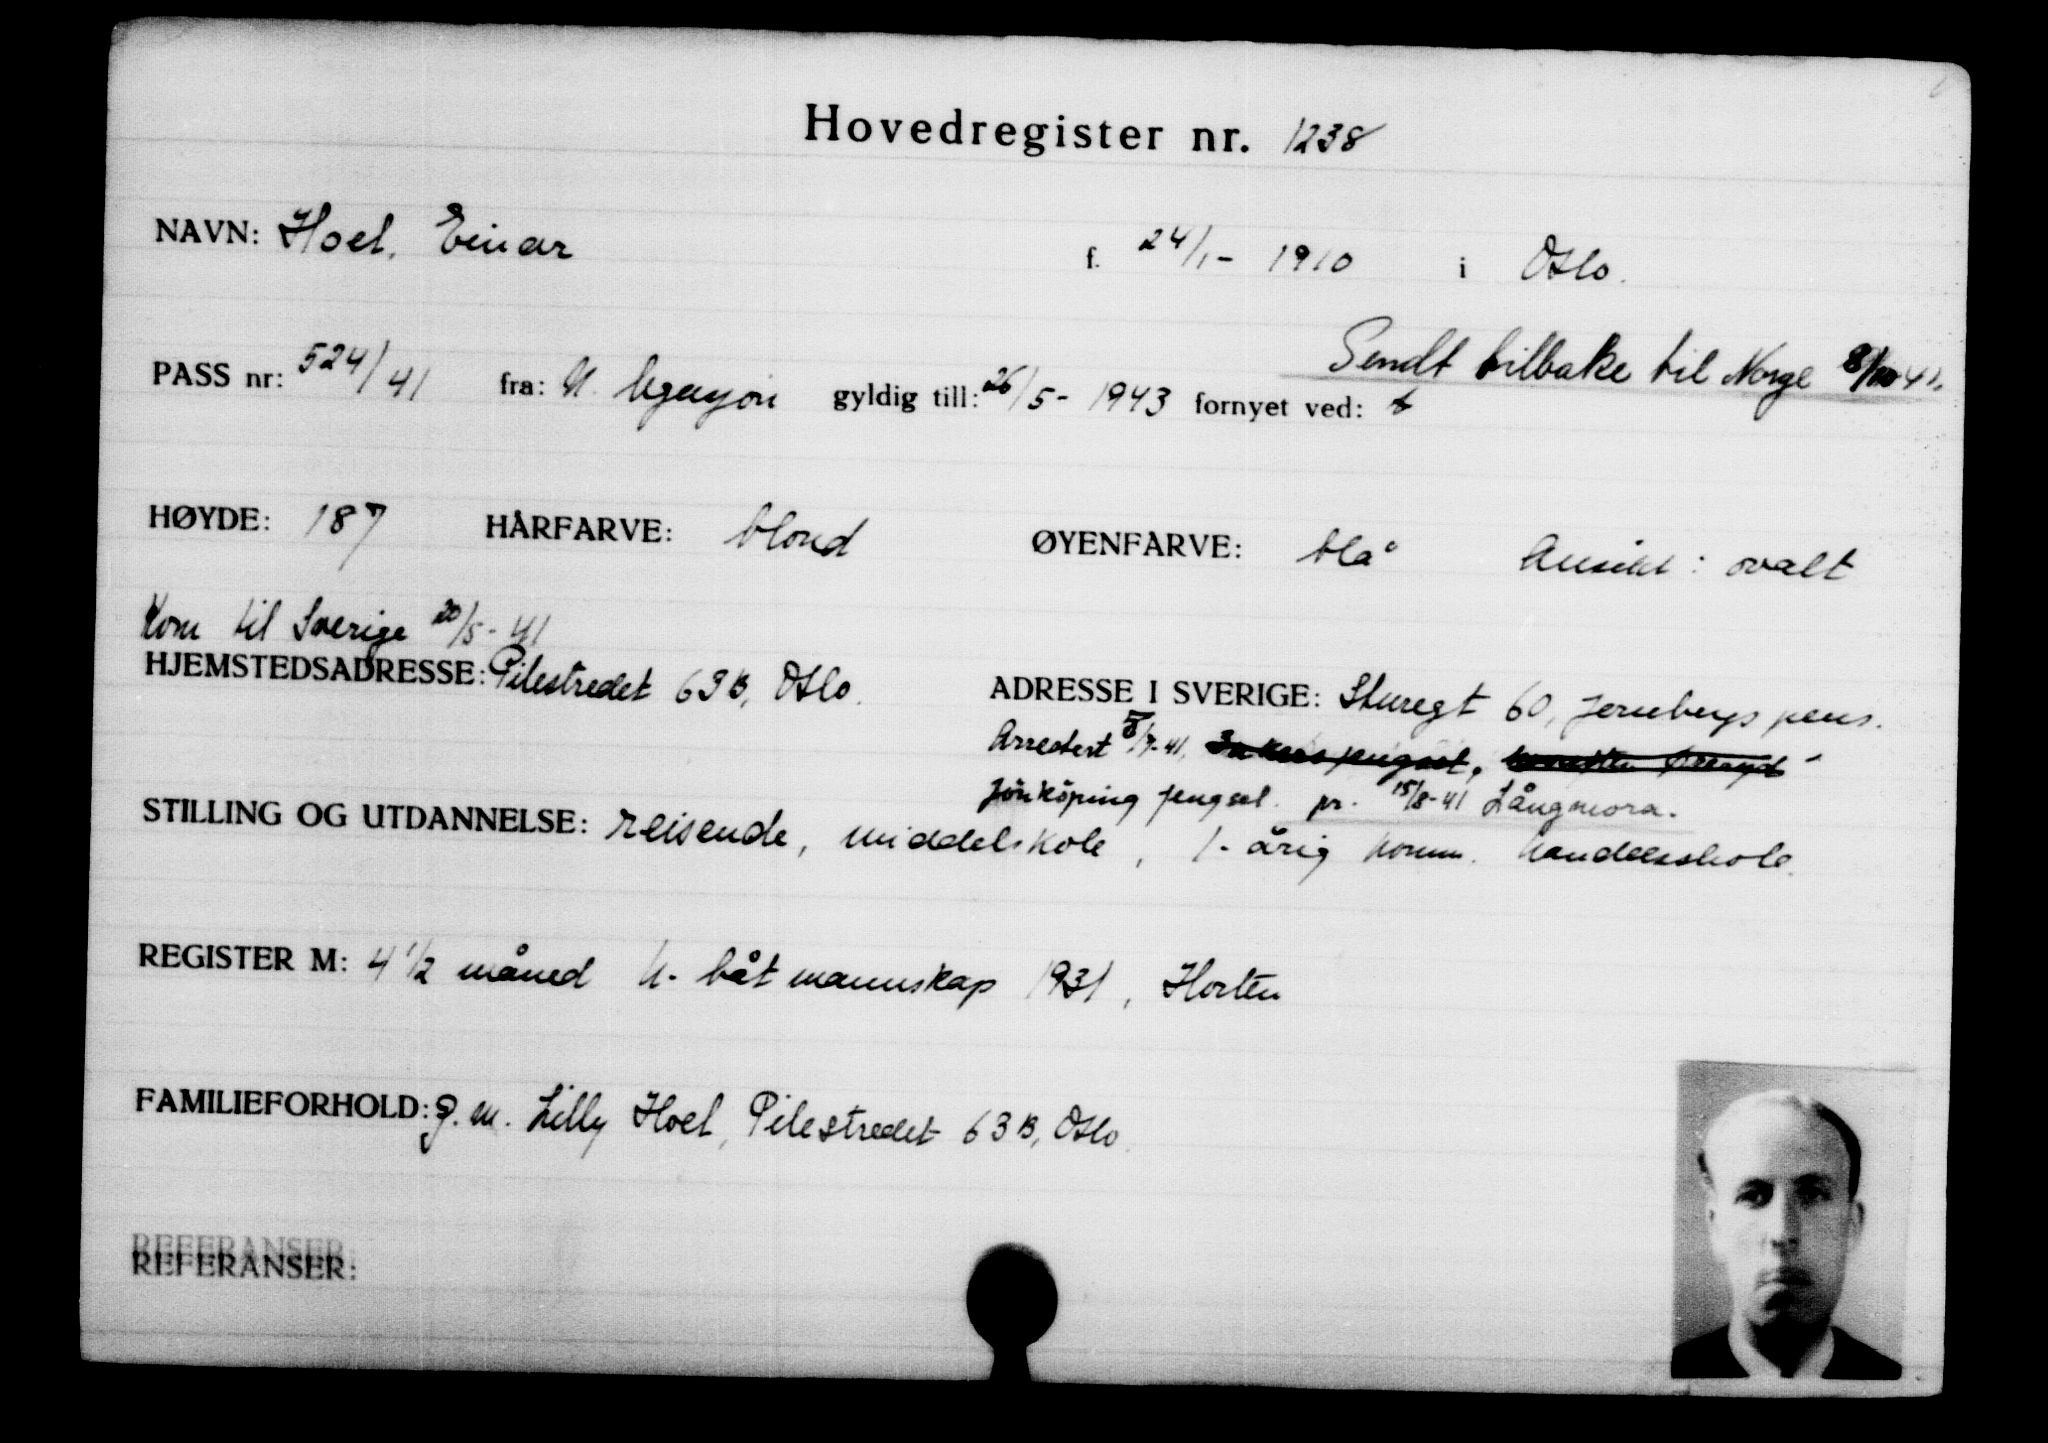 Hovedregister nr. 1238
NAVN: Hoel, Einar f. 24/1- 1910 i Oslo.
Sendt tilbake til Norge 8/10-41.
PASS nr: 524/41 fra: gyldig till: 26/5- 1943 fornyet ved:
HØYDE: 187 HÅRFARVE: blond ØYENFARVE: blå Ansikt: ovalt
Kom til Sverige 20/5-41
HJEMSTEDSADRESSE: Pilestredet 63B, Oslo. ADRESSE I SVERIGE: Sturegt 60, Jernbergs pens.
Arrestert /7-41,
Jönköping fengsel. pr. 15/8-41 Långmora.
STILLING OG UTDANNELSE: reisende, middelskole, 1-årig komm. handelsskole.
REGISTER M: 4 1/2 måned U-båt mannskap 1931, Horten
FAMILIEFORHOLD: g. m. Lilly Hoel, Pilestredet 63B, Oslo.
REFERANSER:
REFERANSER: